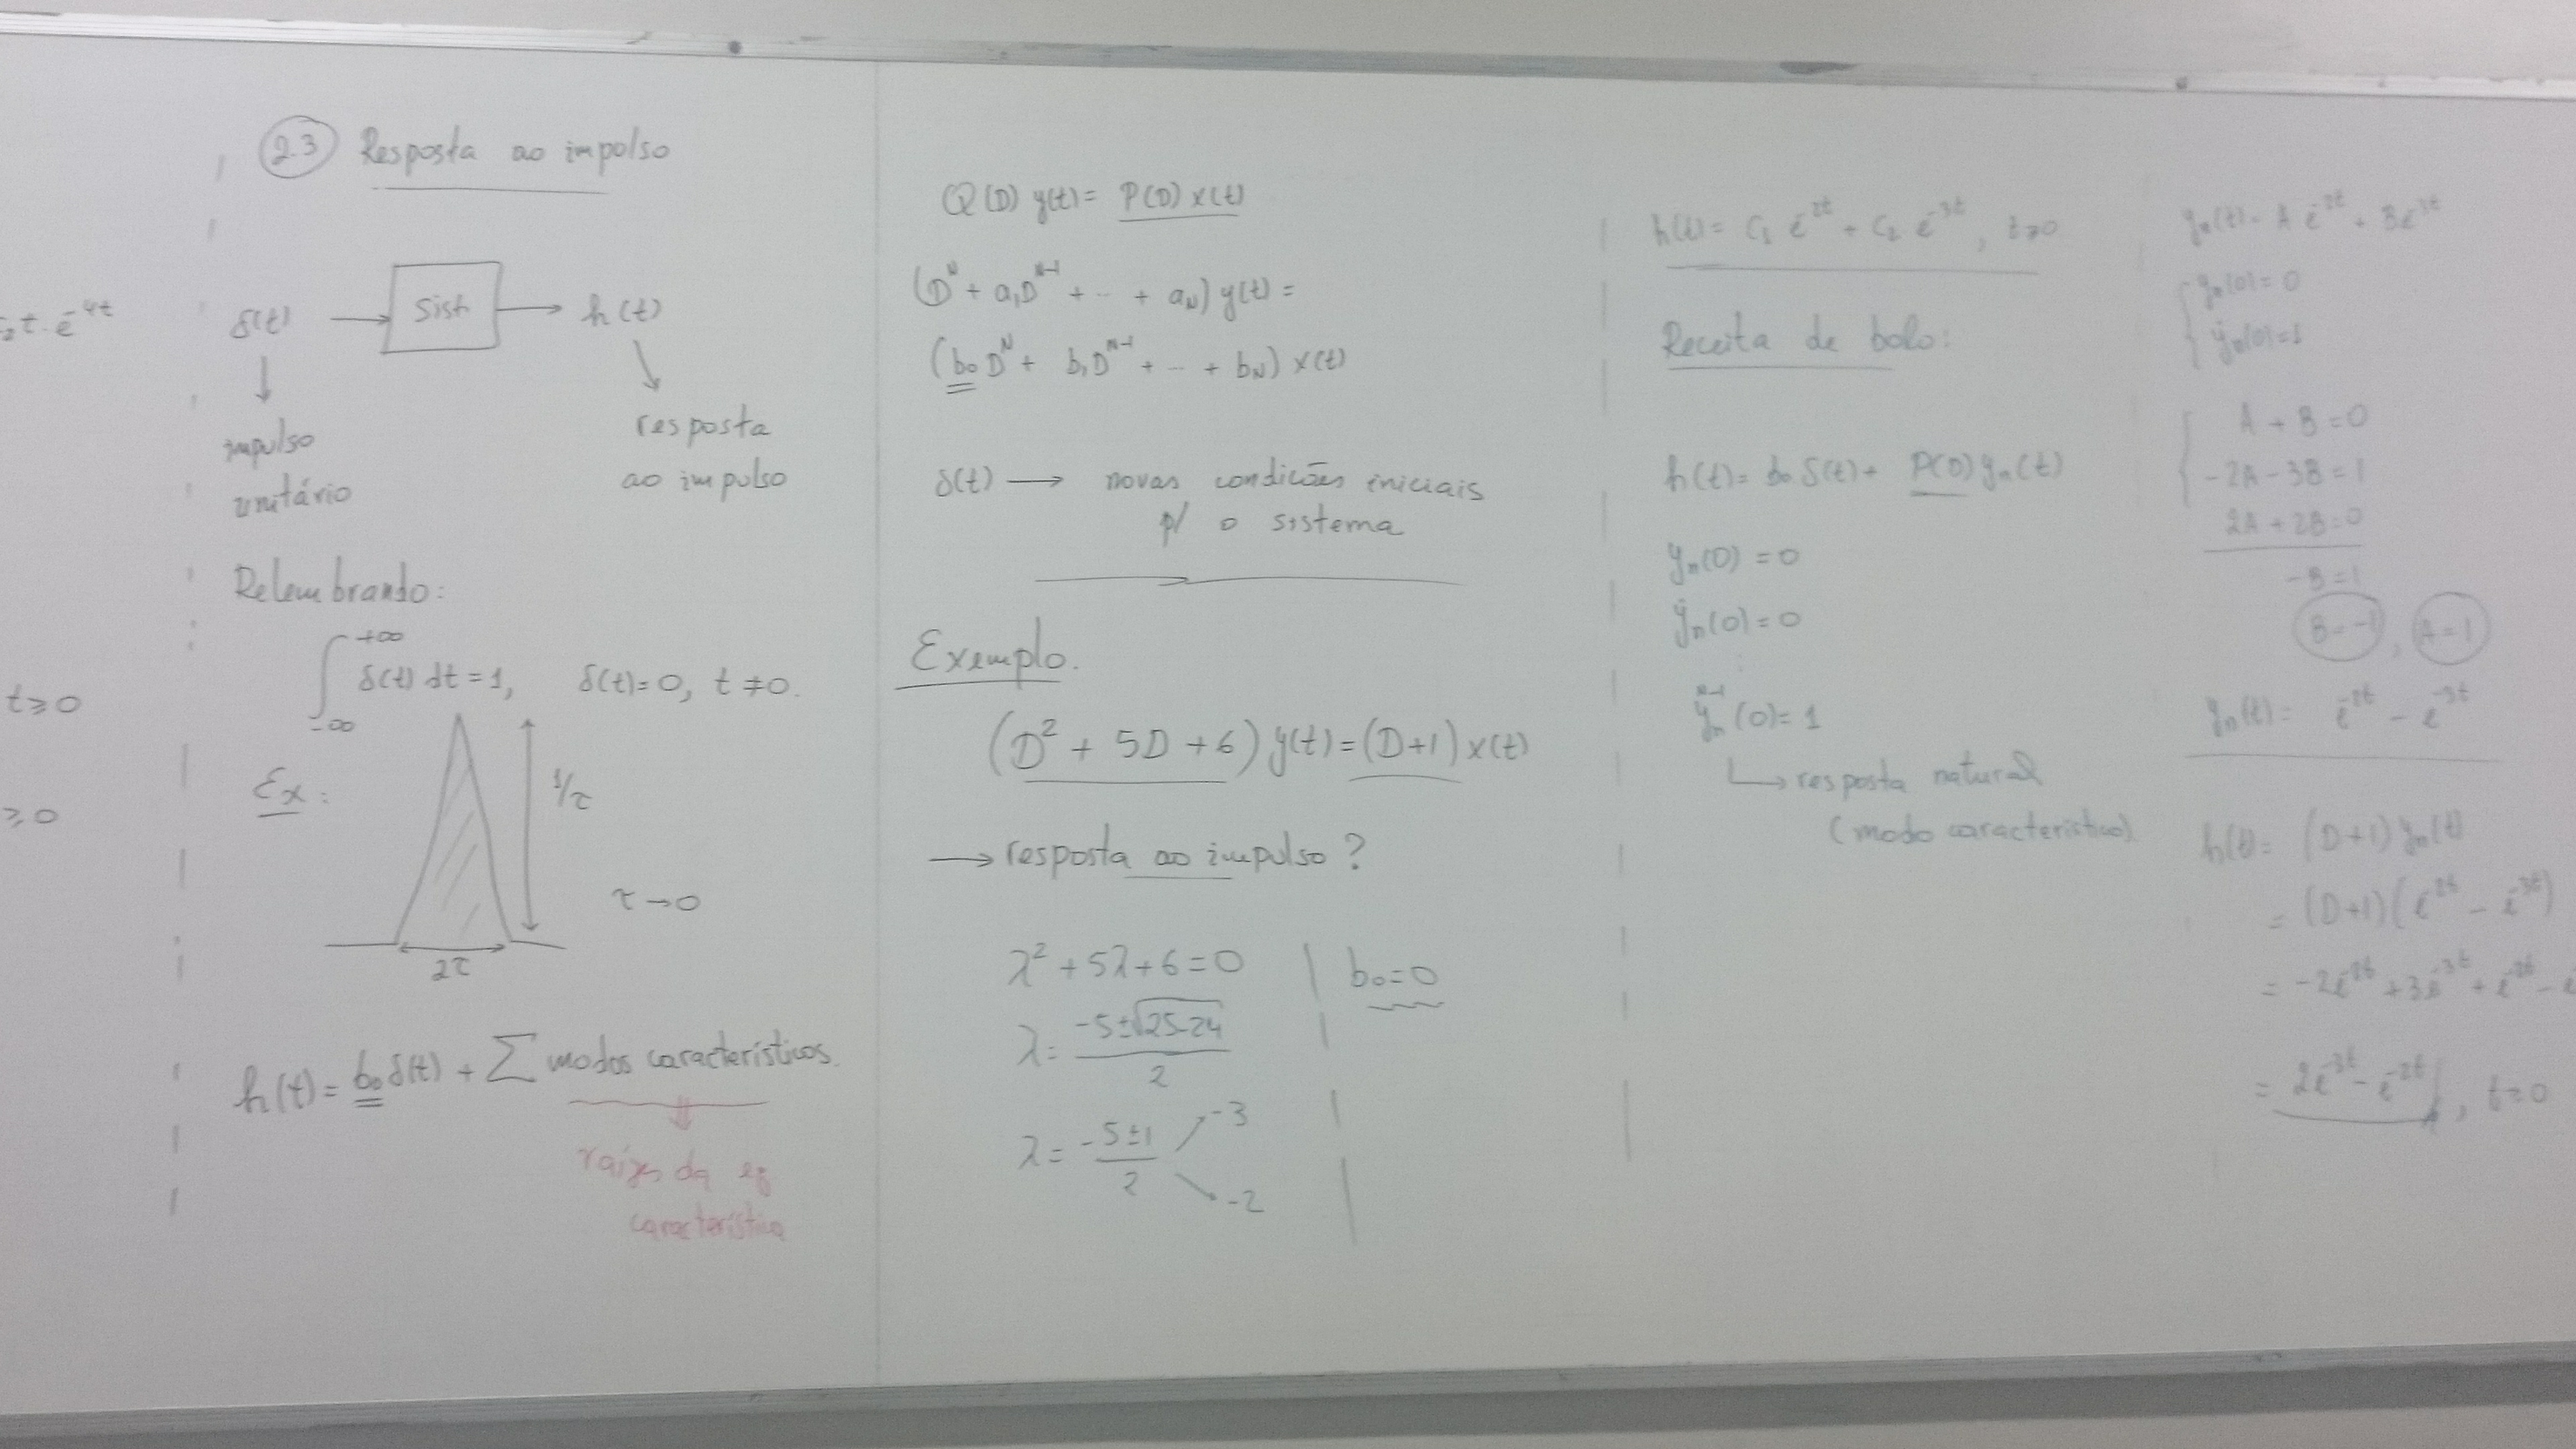 ₂t·e^-4t
t≥0
≥0
2.3 Resposta ao impulso
δ(t) → Sist → h(t)
impulso
unitário
resposta
ao impulso
Relembrando:
∫_{-∞}^{+∞} δ(t) dt = 1, δ(t)=0, t≠0.
Ex:
1/τ
τ→0
2τ
h(t)= b₀δ(t) + ∑ modos característicos.
raízes da eq
característica
Q(D) y(t) = P(D) x(t)
(D^N + a₁D^{N-1} + ... + a_N) y(t) =
(b₀D^N + b₁D^{N-1} + ... + b_N) x(t)
δ(t) → novas condições iniciais
p/ o sistema
Exemplo.
(D² + 5D + 6) y(t) = (D+1) x(t)
→ resposta ao impulso?
λ² + 5λ + 6 = 0
b₀=0
λ = (-5±√25-24)/2
λ = (-5±1)/2
-3
-2
h(t) = C₁ e^-2t + C₂ e^-3t, t≥0
Receita de bolo:
h(t) = b₀ δ(t) + P(D) yₙ(t)
yₙ(0) = 0
ẏₙ(0) = 0
⋮
yₙ^{N-1}(0) = 1
↳ resposta natural
(modo característico)
yₙ(t) = A e^-2t + B e^-3t
yₙ(0) = 0
ẏₙ(0) = 1
A + B = 0
-2A - 3B = 1
2A + 2B = 0
-B = 1
B = -1, A = 1
yₙ(t) = e^-2t - e^-3t
h(t) = (D+1) yₙ(t)
= (D+1)(e^-2t - e^-3t)
= -2e^-2t + 3e^-3t + e^-2t - e
= 2e^-3t - e^-2t, t≥0